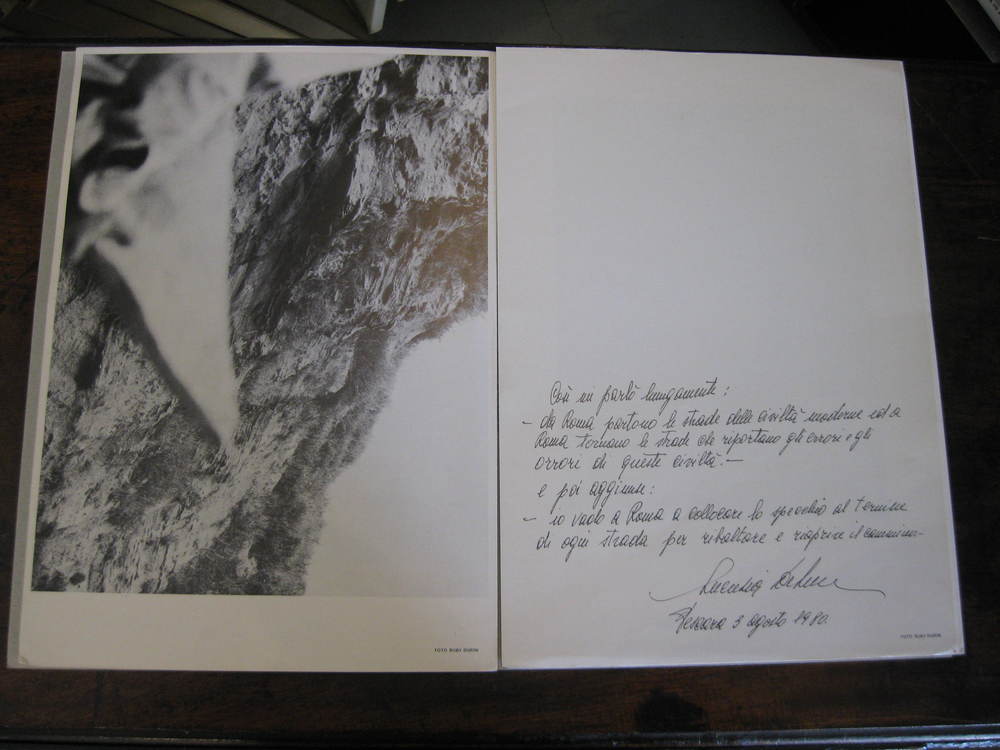 FOTO BUBY DURINI
Così mi parlò lungamente:
- da Roma partono le strade della civiltà moderna ed a
Roma tornano le strade che riportano gli errori e gli
orrori di queste civiltà.-
e poi aggiunse:
- io vado a Roma a collocare lo specchio al termine
di ogni strada per ribaltare e riaprire il cammino-
Lucrezia
Pescara 3 agosto 1980
FOTO BUBY DURINI